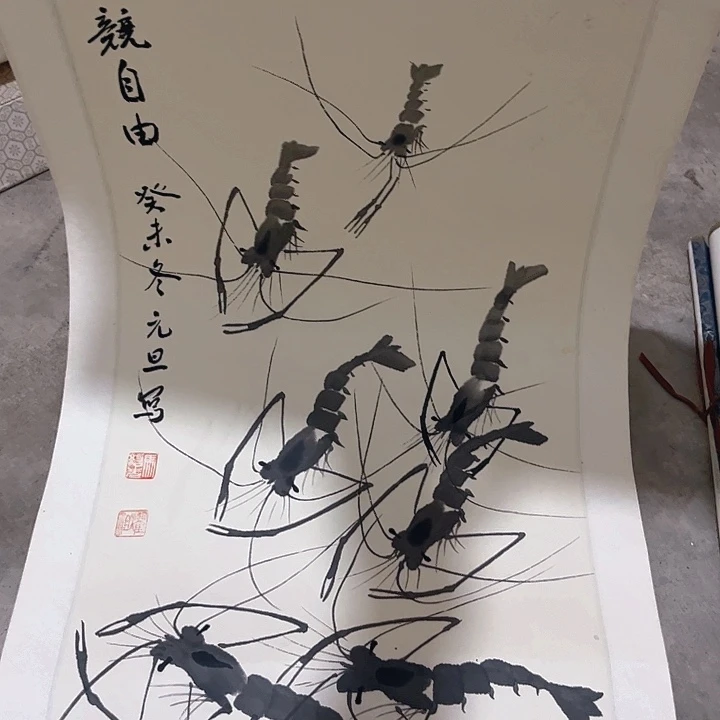 競自由 癸未冬元旦写